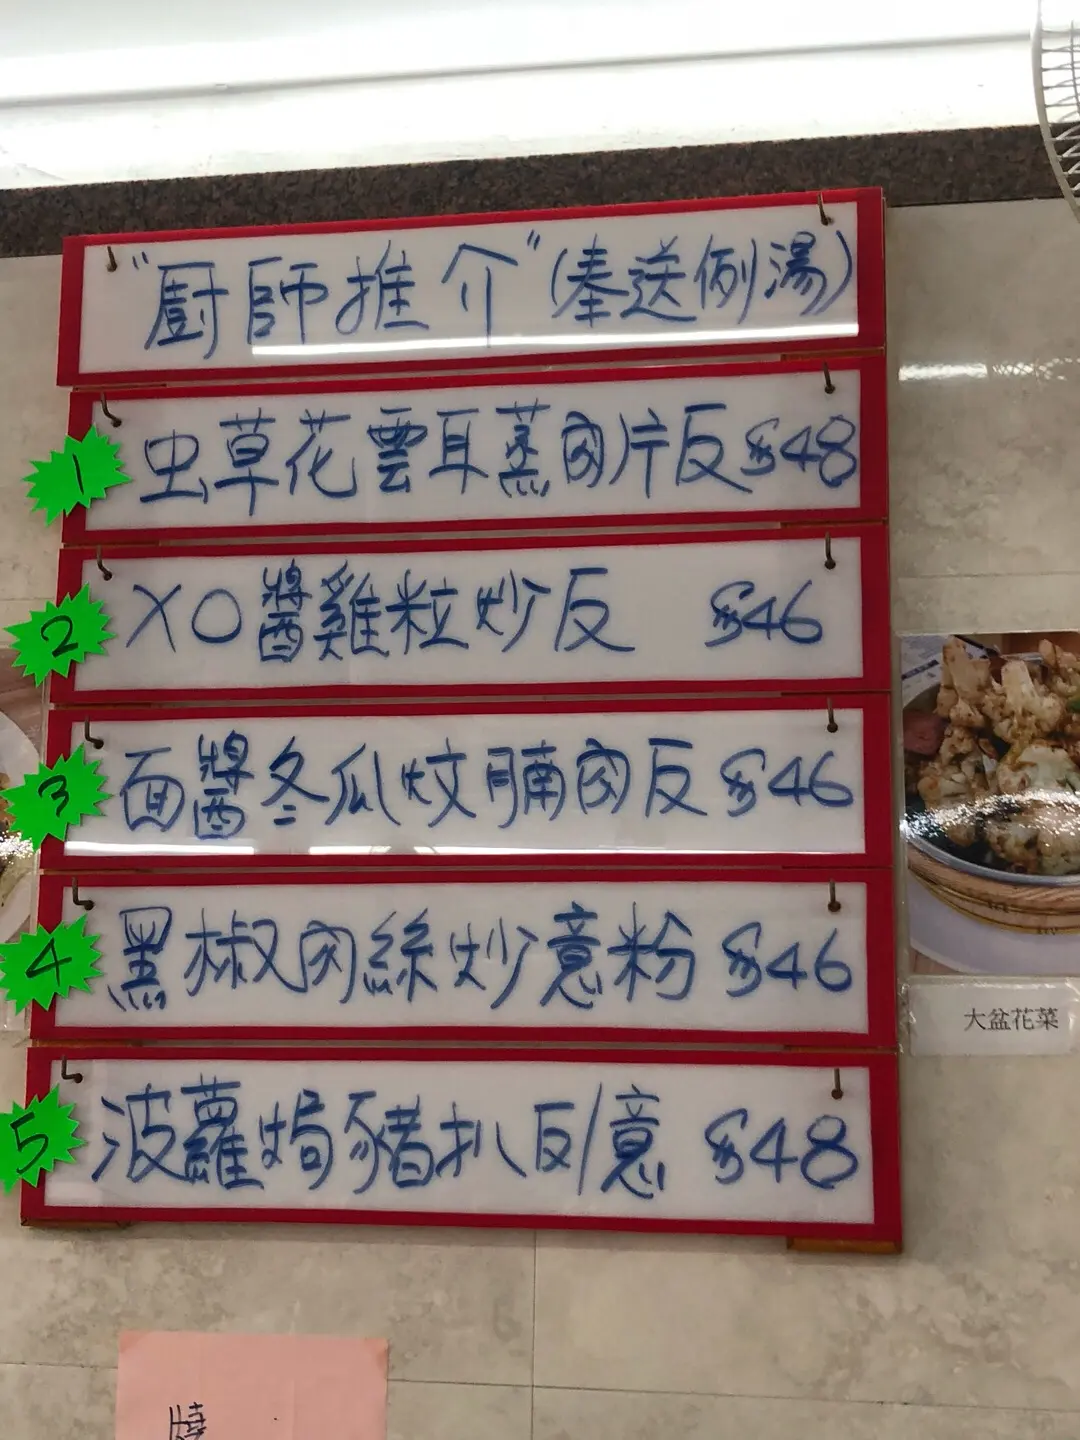 "厨師推介"(奉送例湯)
1 虫草花雲耳蒸肉片反$48
2 XO醬雞粒炒反 $46
3 面醬冬瓜炆腩肉反$46
4 黑椒肉絲炒意粉$46
5 菠蘿焗豬扒反/意 $48
大盆花菜
燒